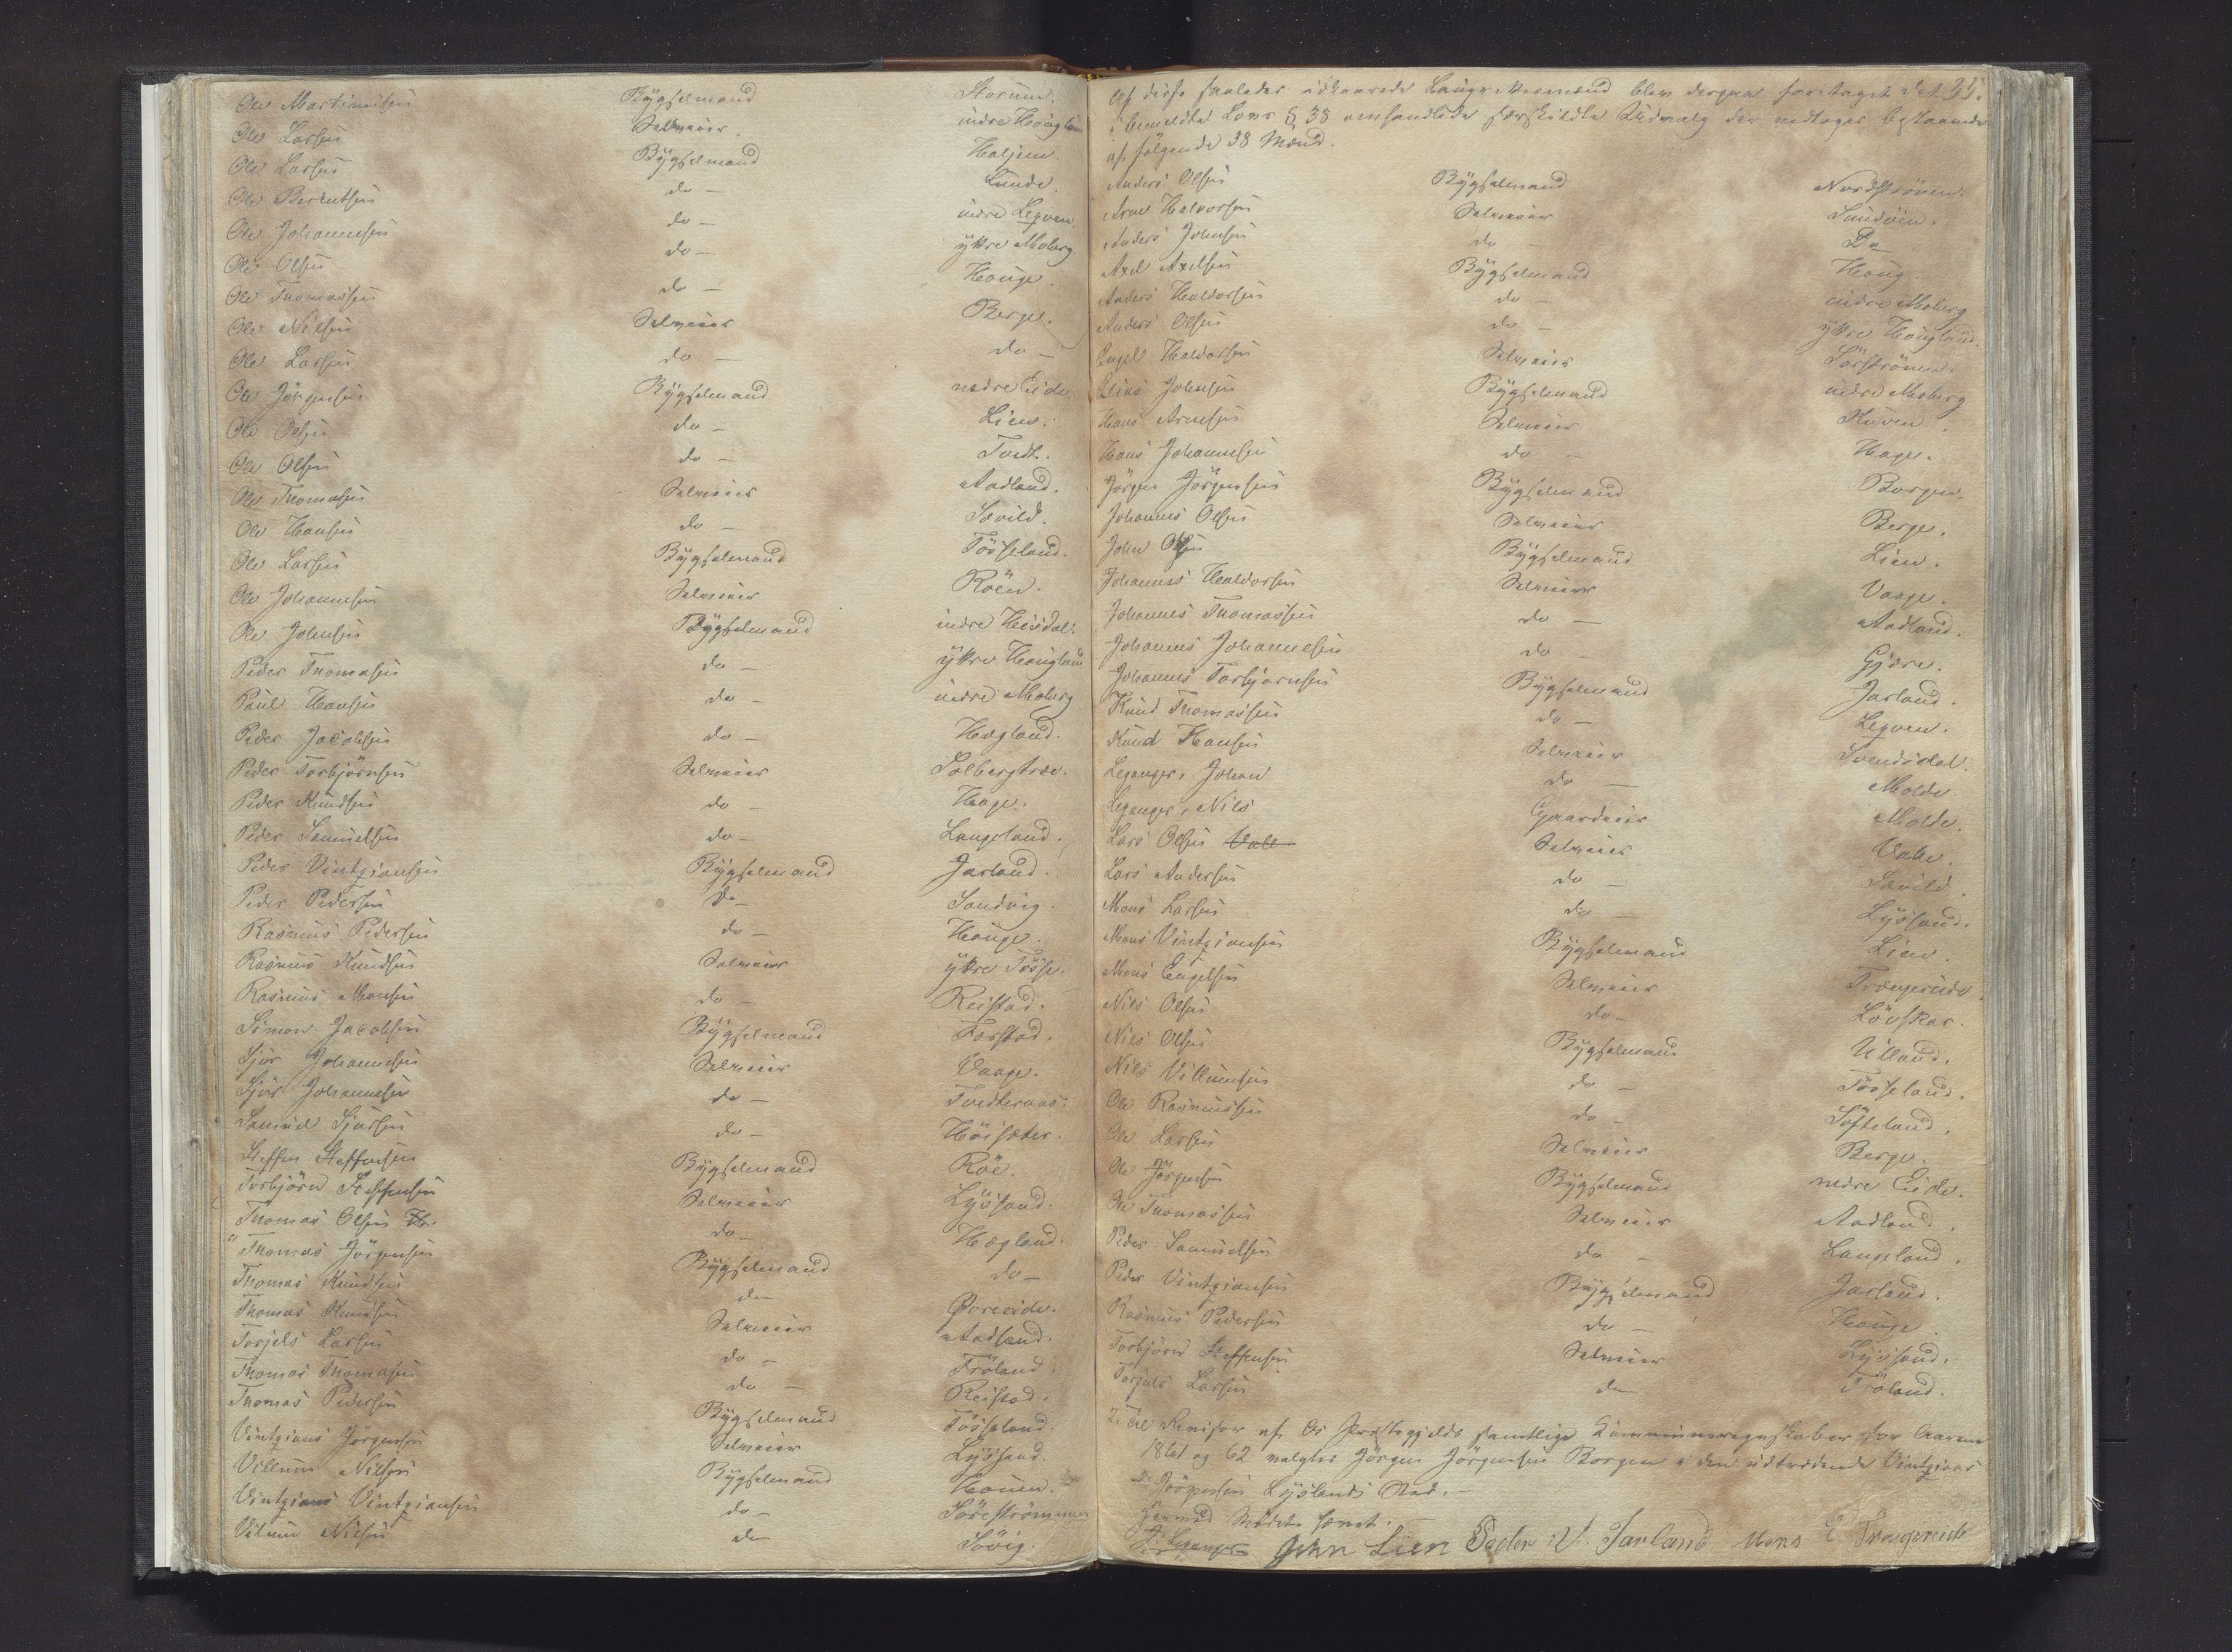 Ole Martinusen Bÿgselmand Storum.
Ole Larsen Selveier. indre Hougland
Ole Larsen Bÿgselmand Haljem.
Ole Berentsen do — Lunde.
Ole Johannesen do — indre Lepsøen
Ole Olsen do — ÿttre Moberg
Ole Thomassen do — Hauge.
Ole Nilsen Selveier Berge.
Ole Larsen do — do —
Ole Jörgensen Bÿgselmand nedre Eide
Ole Olsen do — Lien.
Ole Olsen do — Tvedt.
Ole Thomasen Selveier Aadland.
Ole Hansen do — Sævild.
Ole Larsen Bÿgselmand Tösseland.
Ole Johannesen Selveier Röen.
Ole Johnsen Bÿgselmand indre Heisdal.
Peder Thomasen do — ÿttre Hougland
Paul Hansen do — indre Moberg
Peder Jacobsen do — Hægland.
Peder Torbjörnsen Selveier Solbergtræ.
Peder Knudsen do — Hage.
Peder Samuelsen do — Langeland.
Peder Vintziansen Bÿgselmand Jarland.
Peder Pedersen Do — Sandvig.
Rasmus Pedersen do — Hauge.
Rasmus Knudsen Selveier ÿttre Tösse.
Rasmus Monsen do — Reistad.
Simon Jacobsen Bÿgselmand Forstad.
Sjur Johannesen Selveier Vaage.
Sjur Johannesen do — Tvedteraas.
Samuel Sjursen do — Höisæter.
Steffen Steffensen Bÿgselmand Röe.
Torbjörn Steffensen Selveier Lÿssand.
Thomas Olsen do — Hægland.
Thomas Jörgensen Bÿgselmand do —
Thomas Knudsen do Øvreeide.
Thomas Knudsen Selveier Aadland.
Torjels Larsen do — Fröland
Thomas Thomasen do — Reistad.
Thomas Pedersen Bÿgselmand Tösseland.
Vintzians Jörgensen Selveier Lÿssand.
Villum Nilsen Bÿgselmand Hauen.
Vintzians Vintziansen do — Söreströmmen
Vilum Nilsen do Sövig.
Af disse saaledes udkaarede Laugrettesmænd blev derpaa foretaget det 35.
i bemeldte Lovs § 38 omhandlede særskildte Udvalg der vedtoges bestaaende
af fölgende 38 Mænd.
Anders Olsen Bÿgselmand Nordströnen.
Arne Halvorsen Selveier Sundöen.
Anders Johnsen do — Do
Axel Axelsen Bÿgselmand Haug
Anders Haldorsen do — indre Moberg
Anders Olsen do — ÿttre Hougland.
Engel Haldorsen Selveier Sörströnen.
Elias Johnsen Bÿgselmand indre Moberg
Hans Arnesen Selveier Kuven.
Hans Johannesen do — Hage.
Jörgen Jörgensen Bÿgselmand Borgen.
Johannes Olsen Selveier Berge.
John Olsen Bÿgselmand Lien.
Johannes Haldorsen Selveier Vaage.
Johannes Thomassen do — Aadland.
Johannes Johannesen do — Gjære.
Johannes Torbjörnsen Bÿgselmand Jarland.
Knud Thomassen do — Lepsøen.
Knud Hansen Selveier Svendsdal.
Leganger, Johan do — Molde
Leganger, Nils Gaardeier Molde.
Lars Olsen Valle Selveier Valle.
Lars Andersen do — Sævild.
Mons Larsen do — Lÿssand.
Mons Vintziansen Bÿgselmand Lien.
Mons Engelsen Selveier Trængereide
Nils Olsen do — Lövskar.
Nils Olsen Bÿgselmand Ulland.
Nils Villumsen do — Tösseland.
Ole Rasmussen do — Söfteland.
Ole Larsen Selveier Berge.
Ole Jörgensen Bÿgselmand nedre Eide.
Ole Thomassen Selveier Aadland.
Peder Samuelsen do — Langeland.
Peder Vintziansen Bÿgselmand Jarland.
Rasmus Pedersen do — Hauge
Torbjörn Steffensen Selveier Lÿssand.
Torjuls Larsen do Fröland.
Til Revisor af Os Præstegjelds samtlige Kommuneregnskaber for Aarene
1861 og 62 valgtes Jörgen Jörgensen Borgen i den udtrædende Vintzians
Jörgensen Lÿslands Sted. —
Hermed Mödet hævet.
J. Leganger John Lien Peder V. Jarland Mons E Trængereide